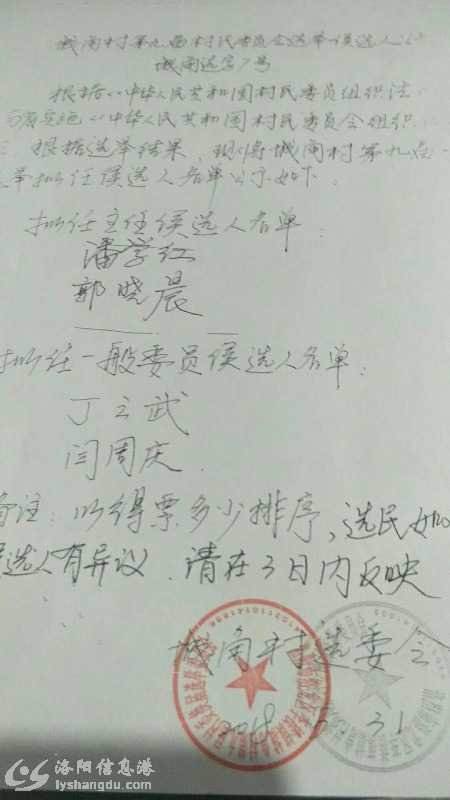 城南村第九届村民委员会选举候选人公
城南选字7号
根据《中华人民共和国村民委员组织法
实施《中华人民共和国村民委员会组织
根据选举结果,现将城南村第九届
举拟任候选人名单公示如下:
拟任主任候选人名单:
潘学红
郭晓晨
拟任一般委员候选人名单:
丁云武
闫周庆
备注:以得票多少排序,选民如
候选人有异议,请在3日内反映
城南村选委会
2018 5 31
洛阳信息港
lyshangdu.com